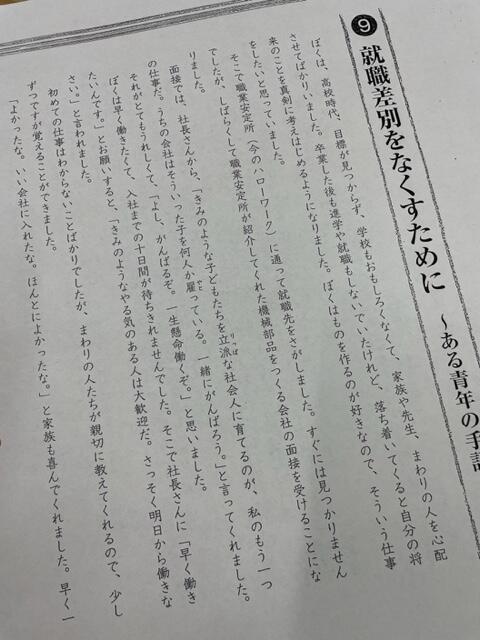 ❾ 就職差別をなくすために
～ある青年の手記
ぼくは、高校時代、目標が見つからず、学校もおもしろくなくて、家族や先生、まわりの人を心配
させてばかりいました。卒業した後も進学や就職もしないでいたけれど、落ち着いてくると自分の将
来のことを真剣に考えはじめるようになりました。ぼくはものを作るのが好きなので、そういう仕事
をしたいと思っていました。
そこで職業安定所（今のハローワーク）に通って就職先をさがしました。すぐには見つかりません
でしたが、しばらくして職業安定所が紹介してくれた機械部品をつくる会社の面接を受けることにな
りました。
面接では、社長さんから、「きみのような子どもたちを立派な社会人に育てるのが、私のもう一つ
の仕事だ。うちの会社はそういった子を何人か雇っている。一緒にがんばろう。」と言ってくれました。
それがとてもうれしくて、「よし、がんばるぞ。一生懸命働くぞ。」と思いました。
ぼくは早く働きたくて、入社までの十日間が待ちきれませんでした。そこで社長さんに「早く働き
たいんです。」とお願いすると、「きみのようなやる気のある人は大歓迎だ。さっそく明日から働きな
さい。」と言われました。
初めての仕事はわからないことばかりでしたが、まわりの人たちが親切に教えてくれるので、少し
ずつですが覚えることができました。
「よかったな。いい会社に入れたな。ほんとによかったな。」と家族も喜んでくれました。早く一